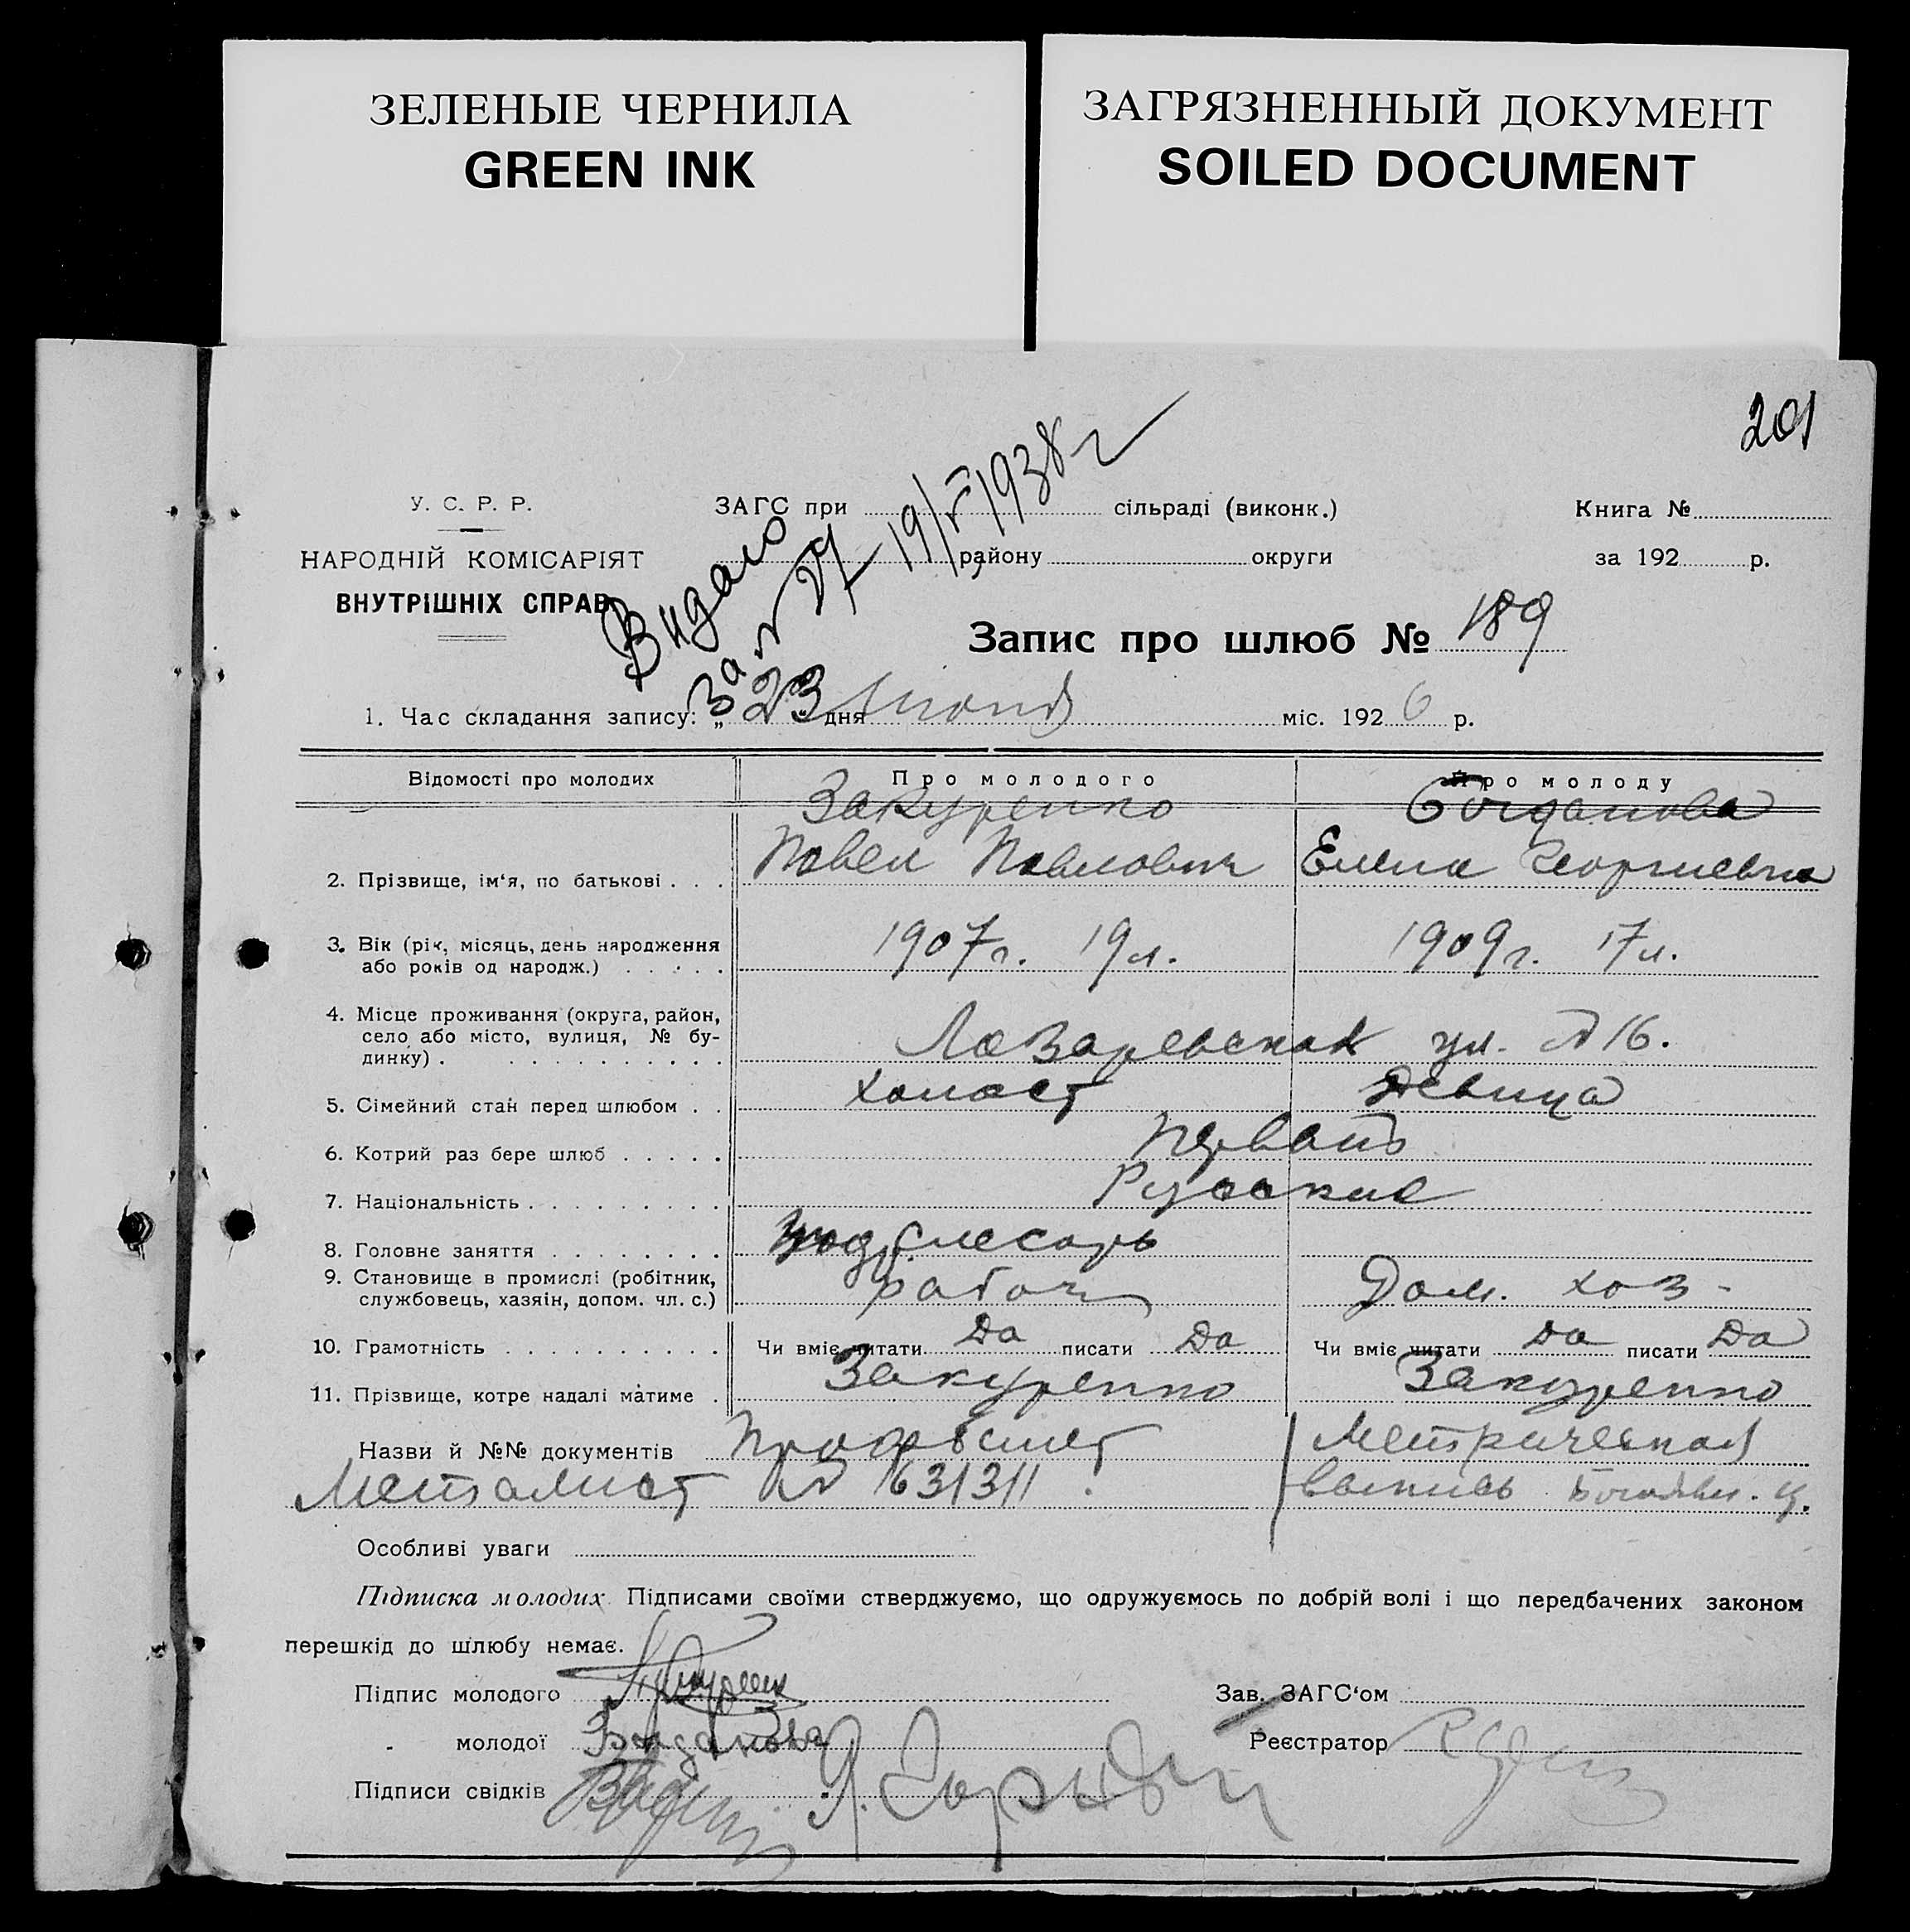 ЗЕЛЕНЫЕ ЧЕРНИЛА
GREEN INK
ЗАГРЯЗНЕННЫЙ ДОКУМЕНТ
SOILED DOCUMENT
201
У. С. Р. Р.
НАРОДНІЙ КОМІСАРІЯТ
ВНУТРІШНІХ СПРАВ
ЗАГС при сільраді (виконк.)
району округи
Книга №
за 192 р.
Видано
за № 19/V 1938 г
Запис про шлюб № 189
1. Час складання запису: „23" дня Июня міс. 1926 р.
Відомості про молодих Про молодого Про молоду
Закуренко Богданова
2. Прізвище, ім‘я, по батькові . . . Павел Павлович Елена Георгиевна
3. Вік (рік, місяць, день народження
або років од народж.) . . . . . 1907 г. 19 л. 1909 г. 17 л.
4. Місце проживання (округа, район,
село або місто, вулиця, № бу-
динку) . . . . . . . . . . Лазаревская ул. № 16.
5. Сімейний стан перед шлюбом . . холост девица
6. Котрий раз бере шлюб . . . . . Первый
7. Національність . . . . . . . . . Русские
8. Головне заняття . . . . . . . . слесарь
9. Становище в промислі (робітник,
службовець, хазяїн, допом. чл. с.) рабоч Дом. хоз-
10. Грамотність . . . . . . . . . . Чи вміє читати да писати да Чи вміє читати да писати да
11. Прізвище, котре надалі матиме . Закуренко Закуренко
Назви й №№ документів Профбилет Метрическая
Металист № 631311. выпись . ц.
Особливі уваги
Підписка молодих. Підписами своїми стверджуємо, що одружуємось по добрій волі і що передбачених законом
перешкід до шлюбу немає.
Підпис молодого Зав. ЗАГС‘ом
„ молодої Богданова Реєстратор
Підписи свідків